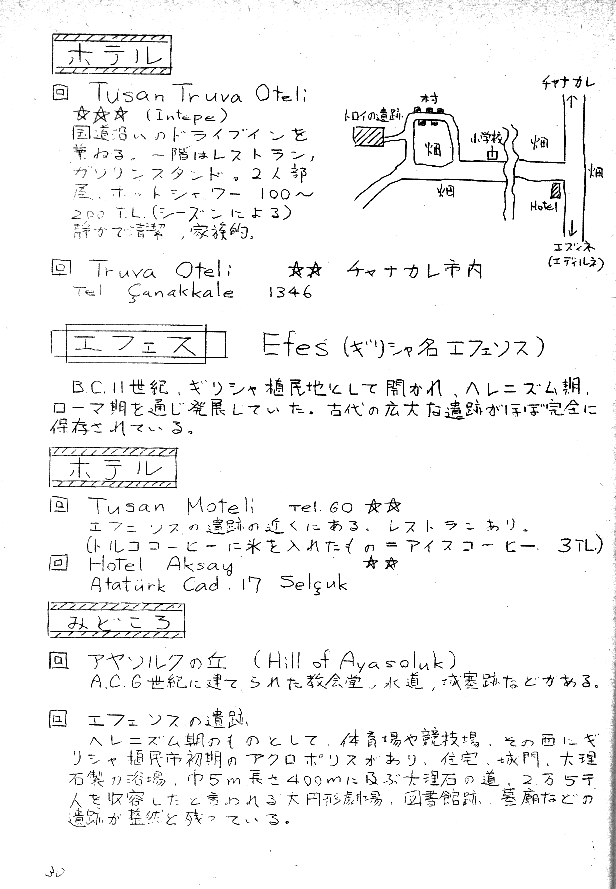 ホテル
回 Tusan Truva Oteli
☆☆☆ (Intepe)
国道沿いのドライブインを
兼ねる。一階はレストラン,
ガソリンスタンド。2人部
屋、ホットシャワー 100〜
200 T.L.(シーズンによる)
静かで清潔,家族的。
チャナカレ
村
トロイの遺跡
小学校
畑
畑
畑
畑
Hotel
エズィネ
(エディルネ)
回 Truva Oteli ☆☆ チャナカレ市内
Tel Çanakkale 1346
エフェス Efes (ギリシャ名エフェソス)
B.C.11世紀、ギリシャ植民地として開かれ、ヘレニズム期、
ローマ期を通じ発展していた。古代の広大な遺跡がほぼ完全に
保存されている。
ホテル
回 Tusan Moteli Tel.60 ☆☆
エフェソスの遺跡の近くにある、レストランあり。
(トルココーヒーに氷を入れたもの=アイスコーヒー 3TL)
回 Hotel Aksay ☆☆
Atatürk Cad. 17 Selçuk
みどころ
回 アヤソルクの丘 (Hill of Ayasoluk)
A.C.6世紀に建てられた教会堂,水道,城塞跡などがある。
回 エフェソスの遺跡
ヘレニズム期のものとして、体育場や競技場、その西にギ
リシャ植民市初期のアクロポリスがあり、住宅、城門、大理
石製の浴場、巾5m長さ400mに及ぶ大理石の道、2万5千
人を収容したと言われる大円形劇場、図書館跡、墓廟などの
遺跡が整然と残っている。
30